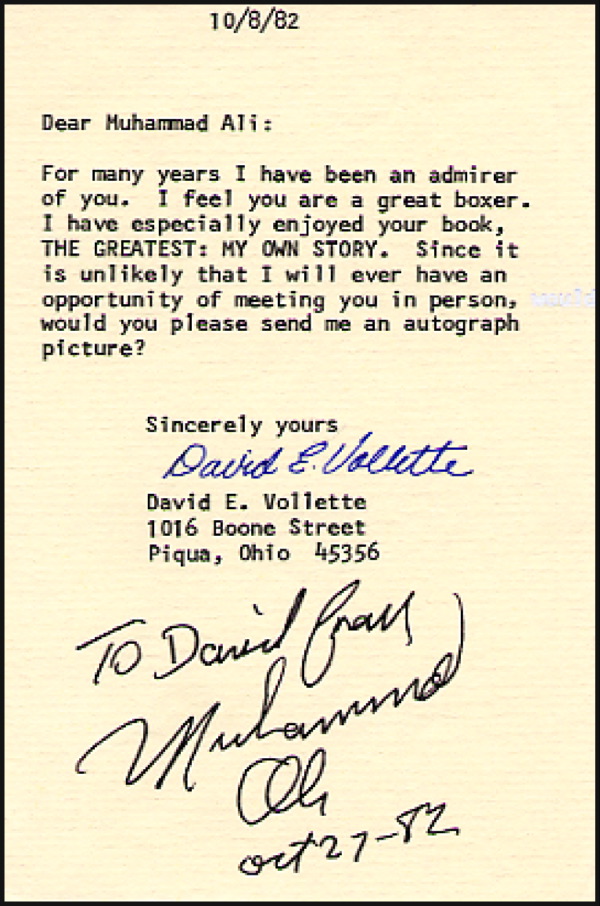 10/8/82
Dear Muhammad Ali:
For many years I have been an admirer
of you. I feel you are a great boxer.
I have especially enjoyed your book,
THE GREATEST: MY OWN STORY. Since it
is unlikely that I will ever have an
opportunity of meeting you in person,
would you please send me an autograph
picture?
Sincerely yours
David E. Vollette
David E. Vollette
1016 Boone Street
Piqua, Ohio 45356
To David from
Muhammad
Ali
oct 27-82